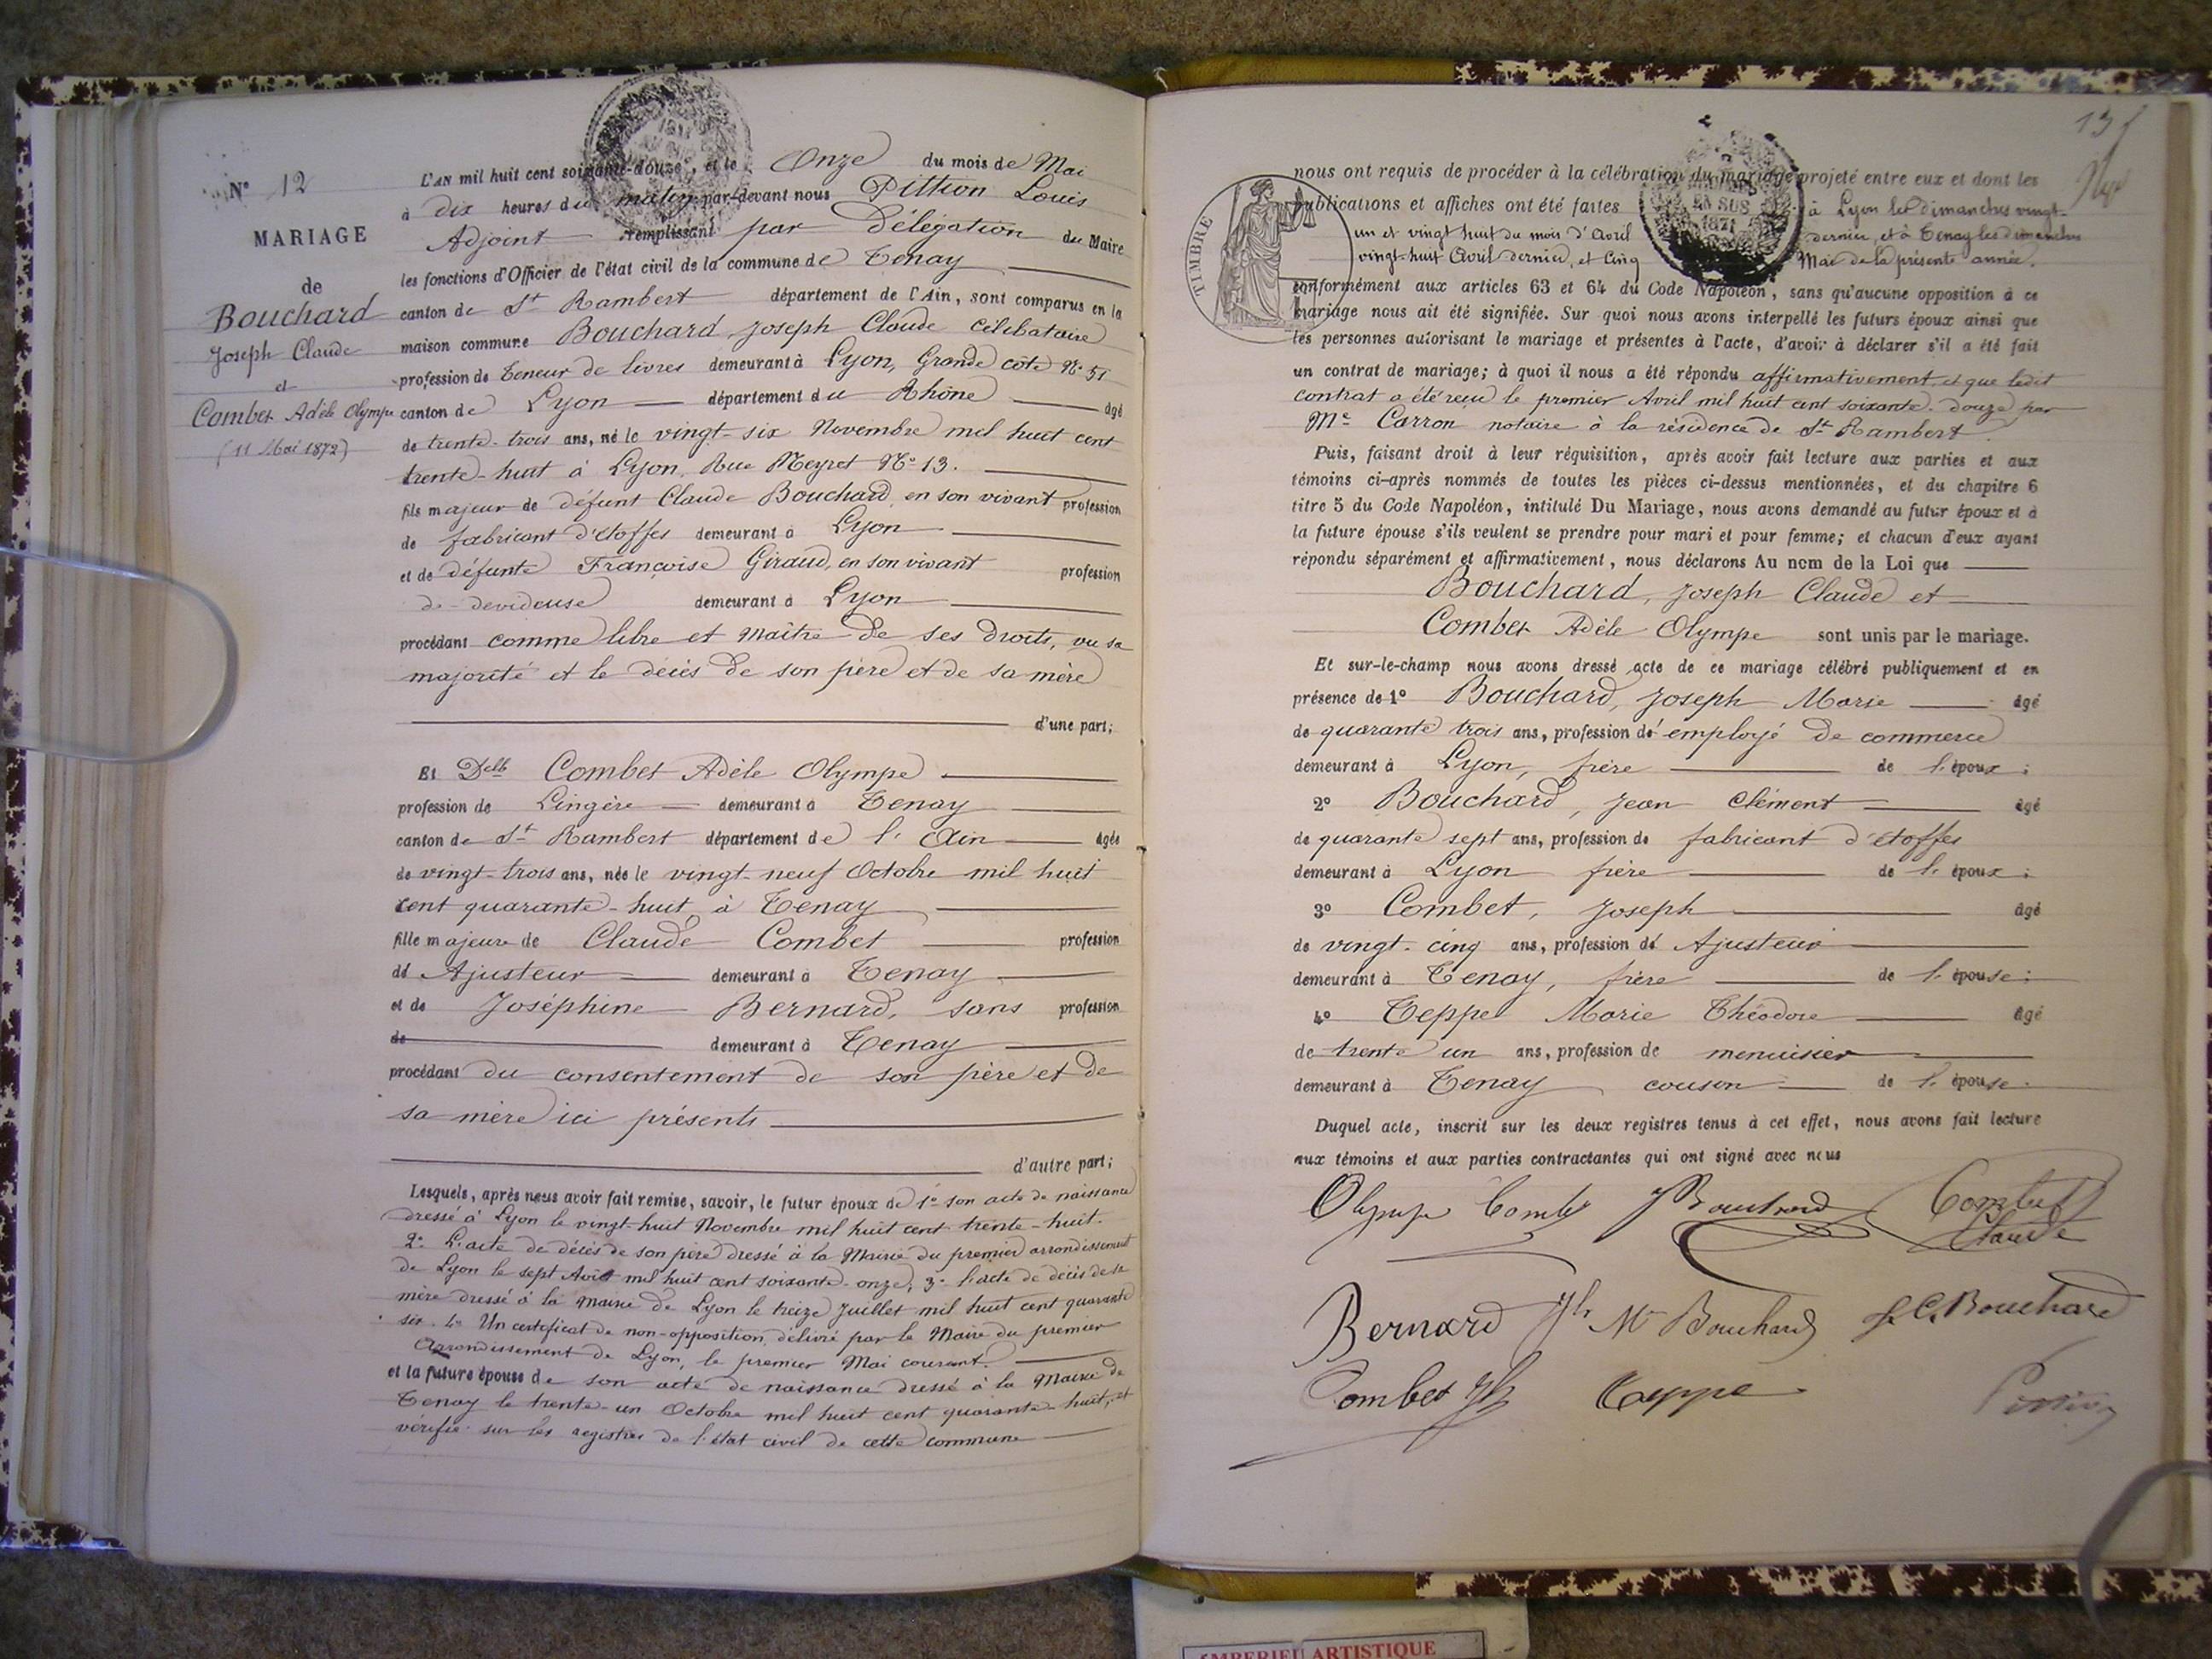 N° 12
MARIAGE
de
Bouchard
Joseph Claude
et
Combet Adèle Olympe
(11 Mai 1872)
L'AN mil huit cent soixante-douze, et le Onze du mois de Mai
à dix heures du matin par-devant nous Pittion Louis
Adjoint remplissant par Délégation du Maire
les fonctions d'Officier de l'état civil de la commune de Tenay
canton de St Rambert département de l'Ain, sont comparus en la
maison commune Bouchard Joseph Claude célebataire
profession de teneur de livres demeurant à Lyon, Grande côte N° 51
canton de Lyon département du Rhône âgé
de trente-trois ans, né le vingt-six Novembre mil huit cent
trente-huit à Lyon, Rue Neyret N° 13.
fils majeur de défunt Claude Bouchard en son vivant profession
de fabricant d'étoffes demeurant à Lyon
et de défunte Françoise Giraud, en son vivant profession
de devideuse demeurant à Lyon
procédant comme libre et Maître de ses droits, vu sa
majorité et le décès de son père et de sa mère
d'une part;
Et Delle Combet Adèle Olympe
profession de Lingère demeurant à Tenay
canton de St Rambert département de l'Ain âgée
de vingt-trois ans, née le vingt-neuf Octobre mil huit
cent quarante-huit à Tenay
fille majeure de Claude Combet profession
de Ajusteur demeurant à Tenay
et de Joséphine Bernard, sans profession
de demeurant à Tenay
procédant du consentement de son père et de
sa mère ici présents
d'autre part;
Lesquels, après nous avoir fait remise, savoir, le futur époux de 1° son acte de naissance
dressé à Lyon le vingt-huit Novembre mil huit cent trente-huit.
2° L'acte de décès de son père dressé à la Mairie du premier arrondissement
de Lyon le sept Août mil huit cent soixante-onze; 3° l'acte de décès de sa
mère dressé à la Mairie de Lyon le treize Juillet mil huit cent quarante
six. 4° Un certificat de non-opposition délivré par le Maire du premier
Arrondissement de Lyon, le premier Mai courant.
et la future épouse de son acte de naissance dressé à la Mairie de
Tenay le trente-un Octobre mil huit cent quarante-huit, et
vérifié sur les registres de l'état civil de cette commune
13
TIMBRE
EN SUS
1871
nous ont requis de procéder à la célébration du mariage projeté entre eux et dont les
publications et affiches ont été faites à Lyon les dimanches vingt-
un et vingt huit du mois d'Avril dernier, et à Tenay les dimanches
vingt-huit Avril dernier, et cinq Mai de la présente année.
conformément aux articles 63 et 64 du Code Napoléon, sans qu'aucune opposition à ce
mariage nous ait été signifiée. Sur quoi nous avons interpellé les futurs époux ainsi que
les personnes autorisant le mariage et présentes à l'acte, d'avoir à déclarer s'il a été fait
un contrat de mariage; à quoi il nous a été répondu affirmativement, et que ledit
contrat a été reçu le premier Avril mil huit cent soixante-douze par
Me Carron notaire à la résidence de St Rambert.
Puis, faisant droit à leur réquisition, après avoir fait lecture aux parties et aux
témoins ci-après nommés de toutes les pièces ci-dessus mentionnées, et du chapitre 6
titre 5 du Code Napoléon, intitulé Du Mariage, nous avons demandé au futur époux et à
la future épouse s'ils veulent se prendre pour mari et pour femme; et chacun d'eux ayant
répondu séparément et affirmativement, nous déclarons Au nom de la Loi que
Bouchard, Joseph Claude et
Combet Adèle Olympe sont unis par le mariage.
Et sur-le-champ nous avons dressé acte de ce mariage célébré publiquement et en
présence de 1° Bouchard, Joseph Marie âgé
de quarante trois ans, profession d'employé de commerce
demeurant à Lyon, frère de l'époux;
2° Bouchard, Jean Clément âgé
de quarante sept ans, profession de fabricant d'étoffes
demeurant à Lyon frère de l'époux;
3° Combet, Joseph âgé
de vingt-cinq ans, profession d'Ajusteur
demeurant à Tenay, frère de l'épouse;
4° Teppe Marie Théodore âgé
de trente un ans, profession de menuisier
demeurant à Tenay cousin de l'épouse.
Duquel acte, inscrit sur les deux registres tenus à cet effet, nous avons fait lecture
aux témoins et aux parties contractantes qui ont signé avec nous
Olympe Combet J Bouchard Combet
Claude
Bernard Jh Mie Bouchard J. C. Bouchard
Combet Jh Teppe Pittion
ARTISTIQUE